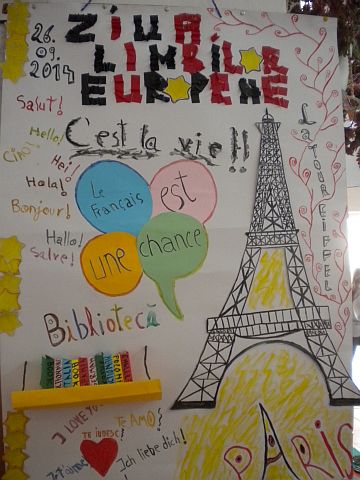 26.
09.
2014
ZIUA
LIMBILOR
EUROPENE
Salut!
Hello!
Ciao!
Hei!
Hola!
Bonjour!
Hallo!
Salve!
C'est la vie!!
Le
Français
est
une
chance
La tour Eiffel
Bibliotecă
I LOVE YOU!
Te AMO!
Te iubesc!
Je t'aime
Ich liebe dich!
PARIS